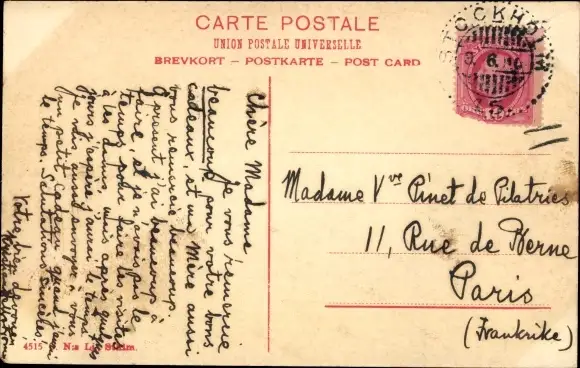 CARTE POSTALE
UNION POSTALE UNIVERSELLE
BREVKORT – POSTKARTE – POST CARD
STOCKHOLM
5. 6.
Chère Madame!
Je vous remercie
beaucoup pour votre bons
cadeaux, et ma Mère aussi
vous remercie beaucoup.
A présent j'ai beaucoup à
faire, et je n'avois pas le
temps pour faire les visites
à les dames, mais après quelques
jours j'espère j'aurai le temps.
Je vais aussi envoyer à vous
un petit cadeau quand j'aurai
le temps. Salutation
Votre bien
Madame Vve Pinet de Pilatries
11, Rue de Berne
Paris
(Frankrike)
4515